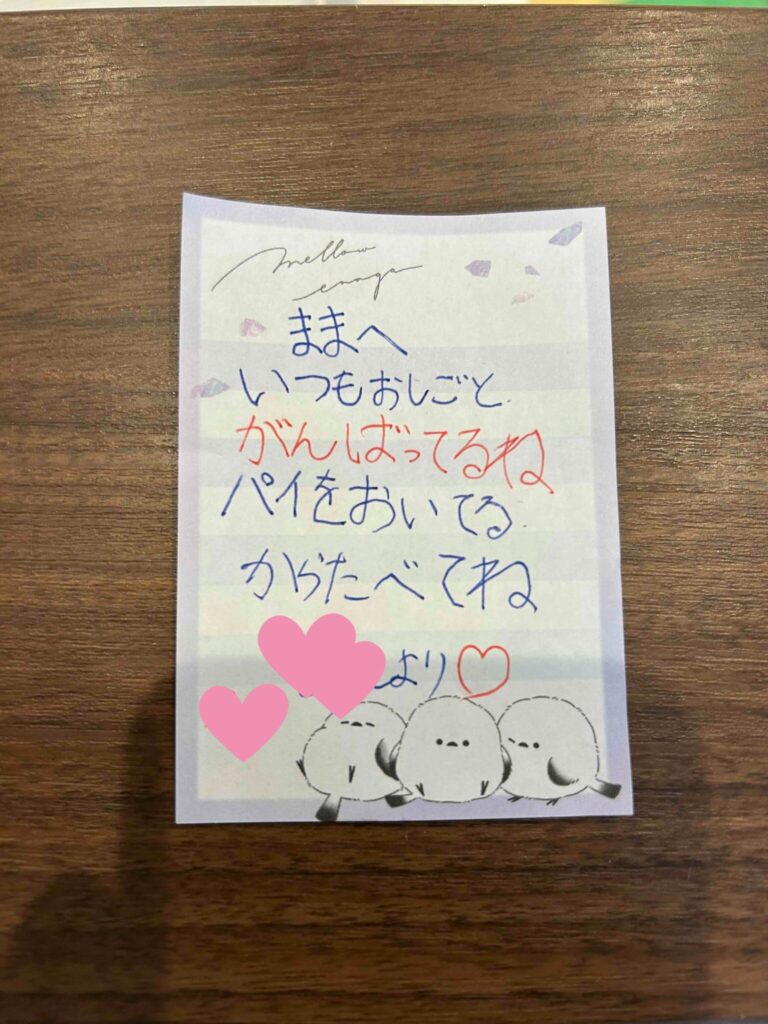 mellow
enaga
ままへ
いつもおしごと
がんばってるね
パイをおいてる
からたべてね
より♡